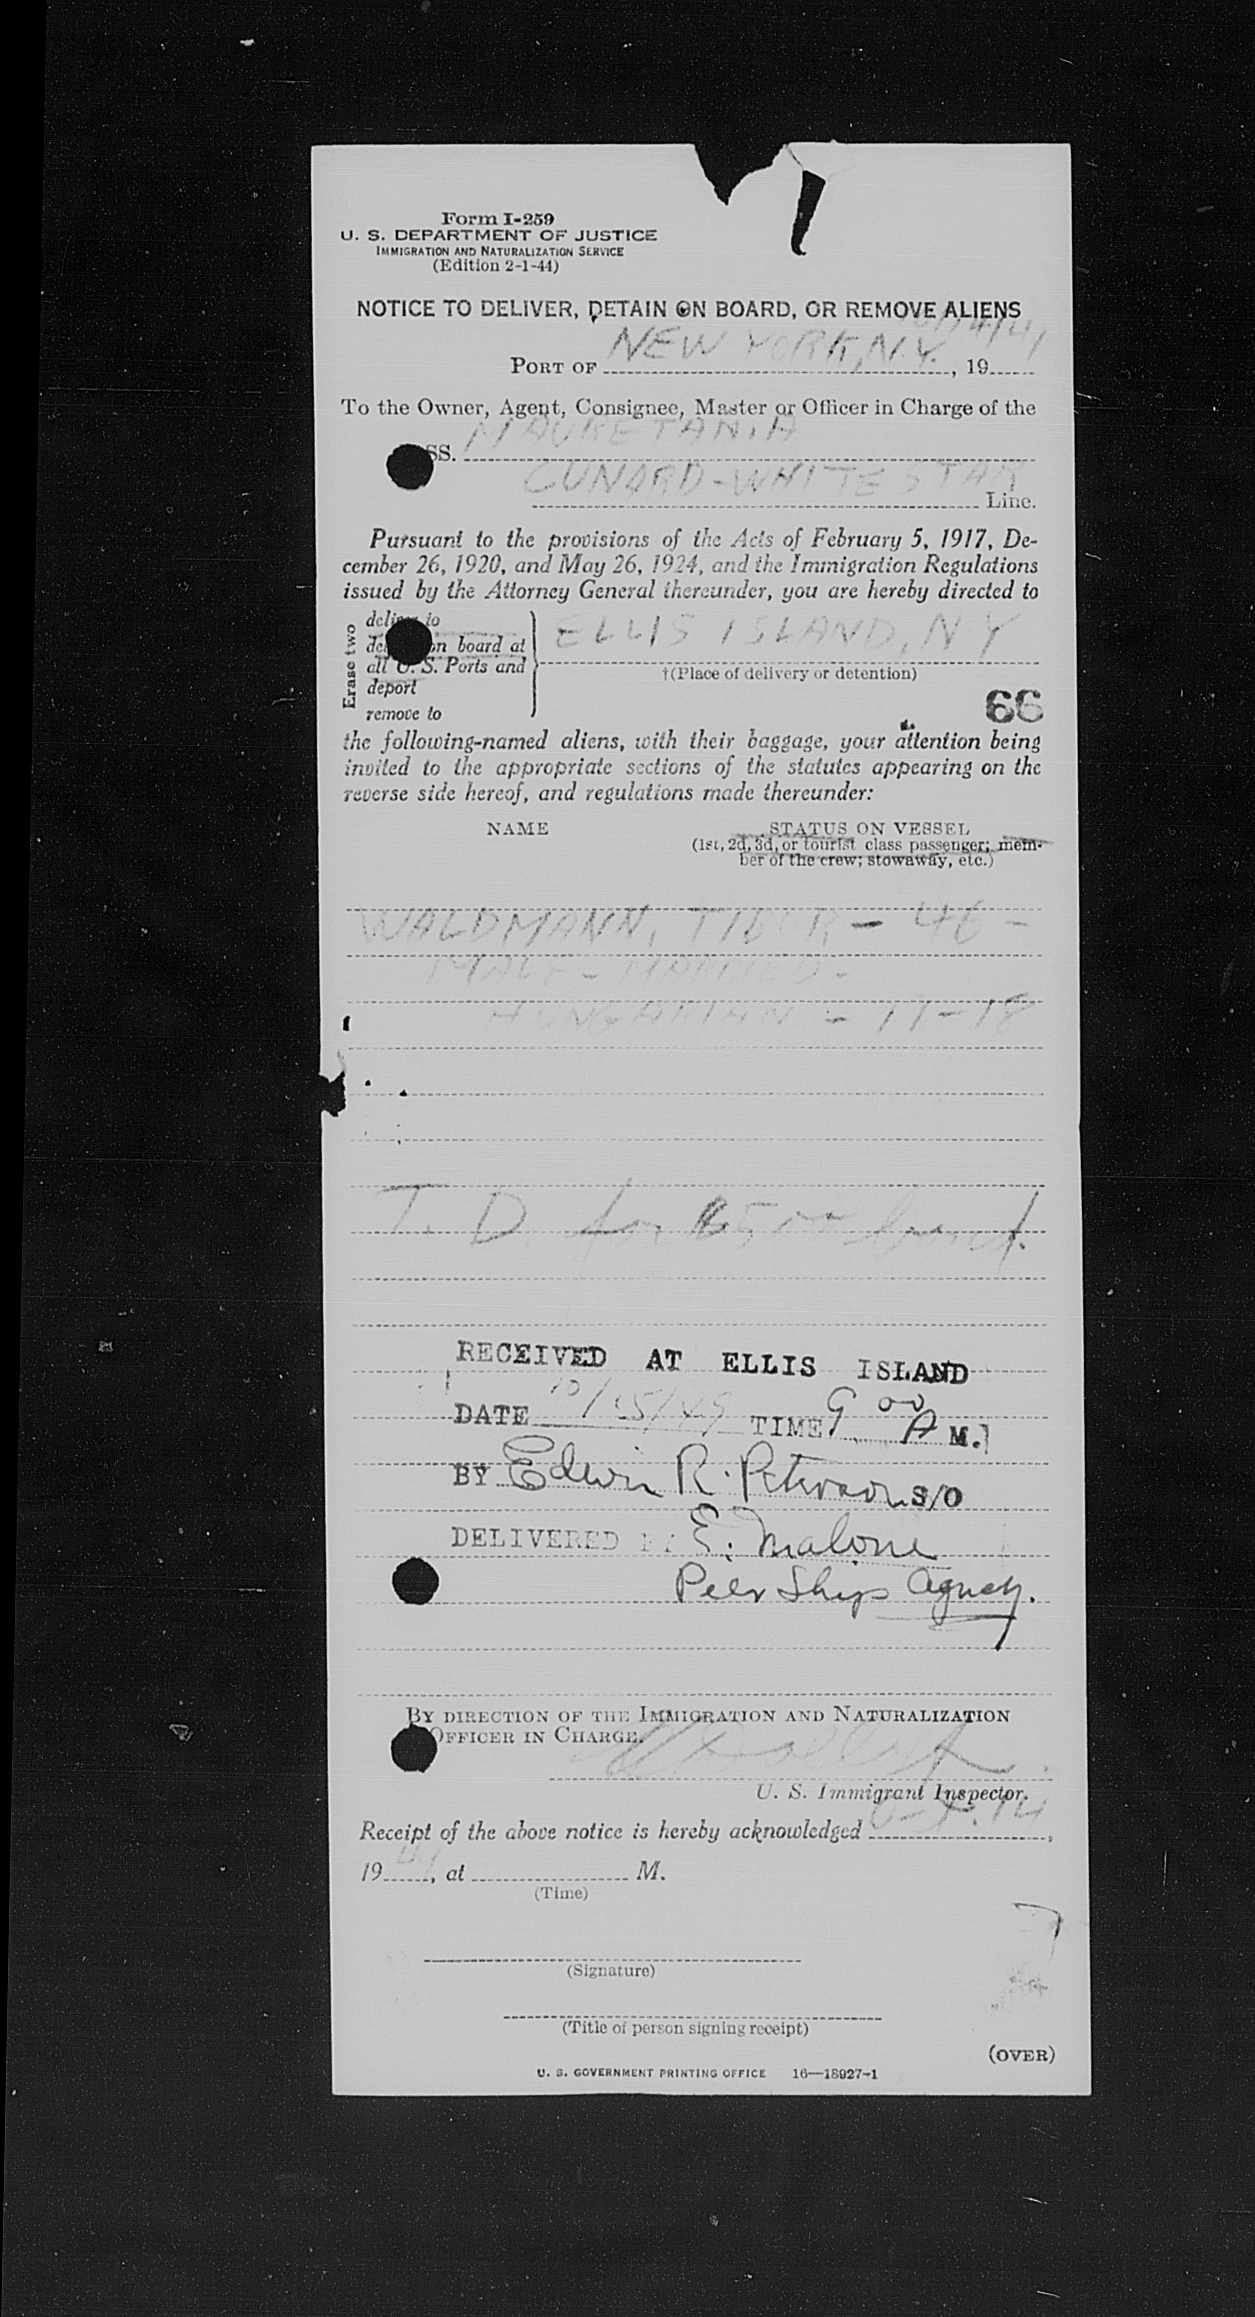 Form I-259
U. S. DEPARTMENT OF JUSTICE
IMMIGRATION AND NATURALIZATION SERVICE
(Edition 2-1-44)
NOTICE TO DELIVER, DETAIN ON BOARD, OR REMOVE ALIENS
PORT OF NEW YORK, N.Y., 19
To the Owner, Agent, Consignee, Master or Officer in Charge of the
SS. MAURETANIA
CUNARD-WHITE STAR Line.
Pursuant to the provisions of the Acts of February 5, 1917, De-
cember 26, 1920, and May 26, 1924, and the Immigration Regulations
issued by the Attorney General thereunder, you are hereby directed to
Erase two
deliver to
on board at
all U. S. Ports and
deport
remove to
ELLIS ISLAND, N Y
†(Place of delivery or detention)
66
the following-named aliens, with their baggage, your attention being
invited to the appropriate sections of the statutes appearing on the
reverse side hereof, and regulations made thereunder:
NAME STATUS ON VESSEL
(1st, 2d, 3d, or tourist class passenger; mem-
ber of the crew; stowaway, etc.)
WALDMANN, TIBOR - 46 -
MALE - MARRIED -
HUNGARIAN - 17-18
T. D. for
RECEIVED AT ELLIS ISLAND
DATE 10/15/49 TIME 9 00 A M.
BY Edwin R. Peterson S/O
DELIVERED E. Malone
Peer Ships Agncy.
BY DIRECTION OF THE IMMIGRATION AND NATURALIZATION
OFFICER IN CHARGE.
U. S. Immigrant Inspector.
Receipt of the above notice is hereby acknowledged ,
19 , at M.
(Time)
(Signature)
(Title of person signing receipt)
(OVER)
U. S. GOVERNMENT PRINTING OFFICE 16—18927-1